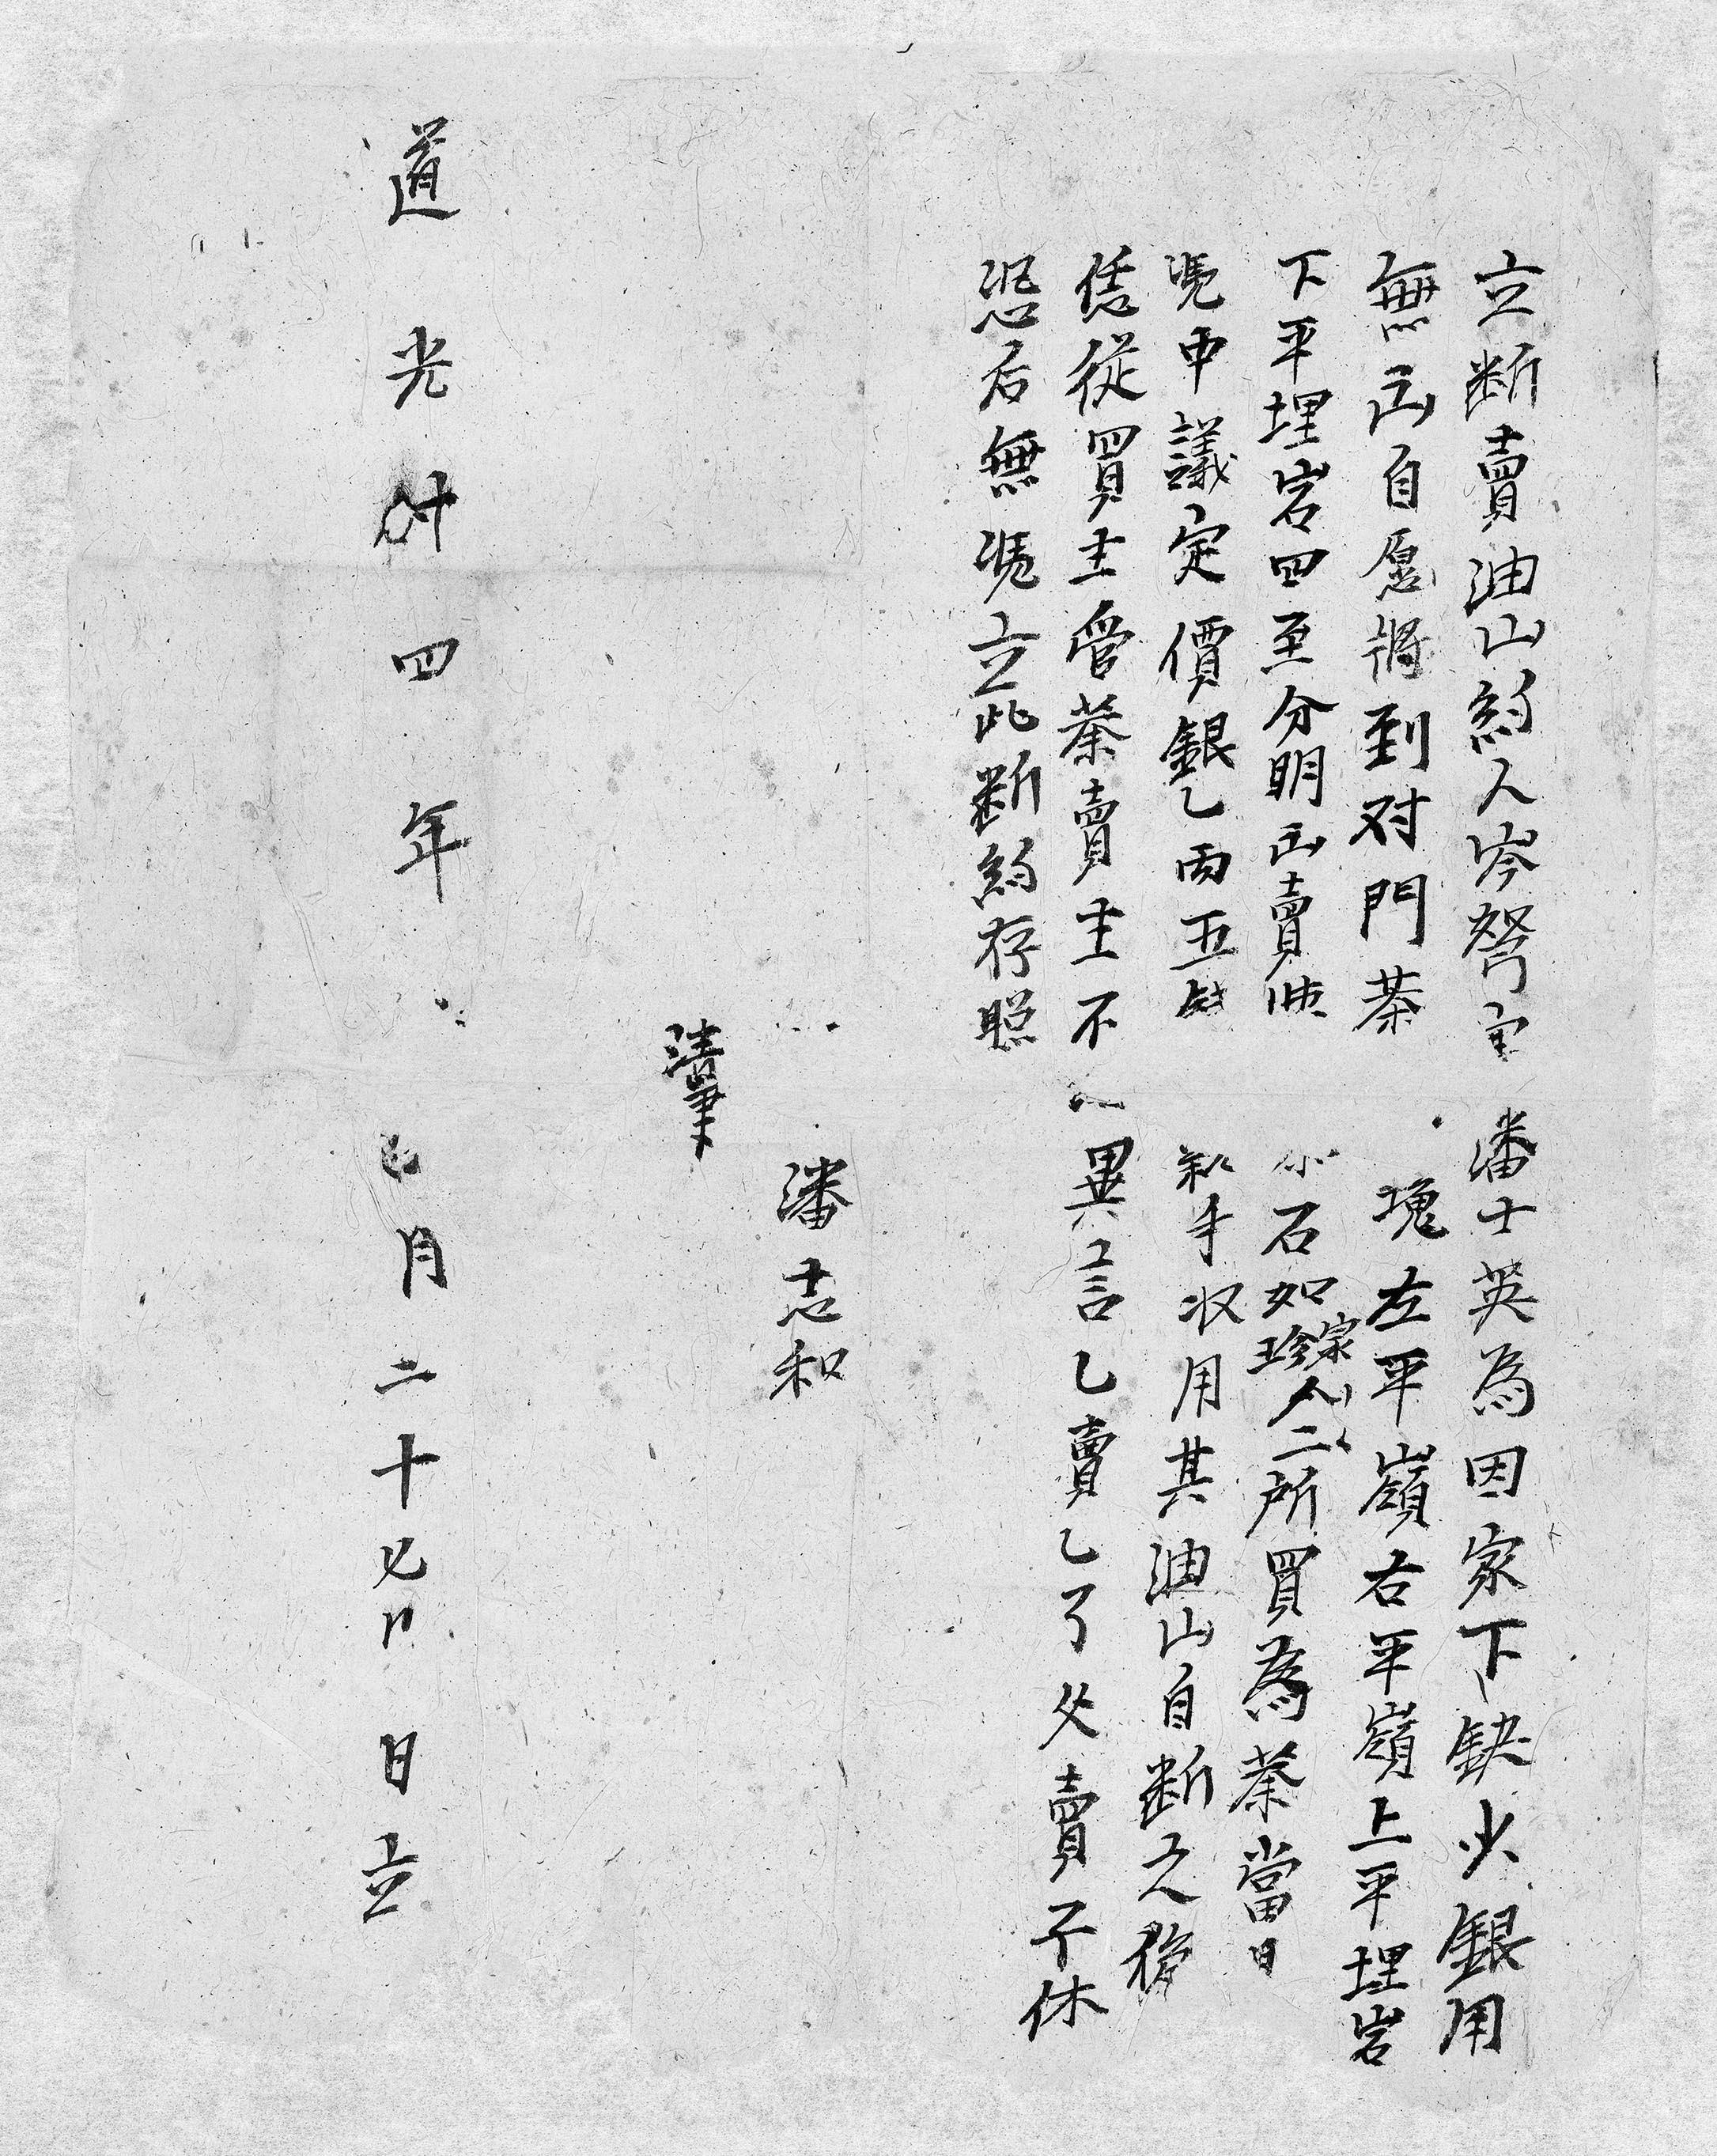 立断賣油山約人岑努宇潘士英為因家下缺少銀用
無出自愿將到对門茶塊左平嶺右平嶺上平埋岩
下平埋岩四至分明出賣小石如珍家二人所買為業當日
凴中議定價銀乙両五手収用其油山自断之後
恁從買主管業賣主不異言乙賣乙了父賣子休
恐后無凴立此断約存照
潘志和
請筆
道光卄四年月二十七日立